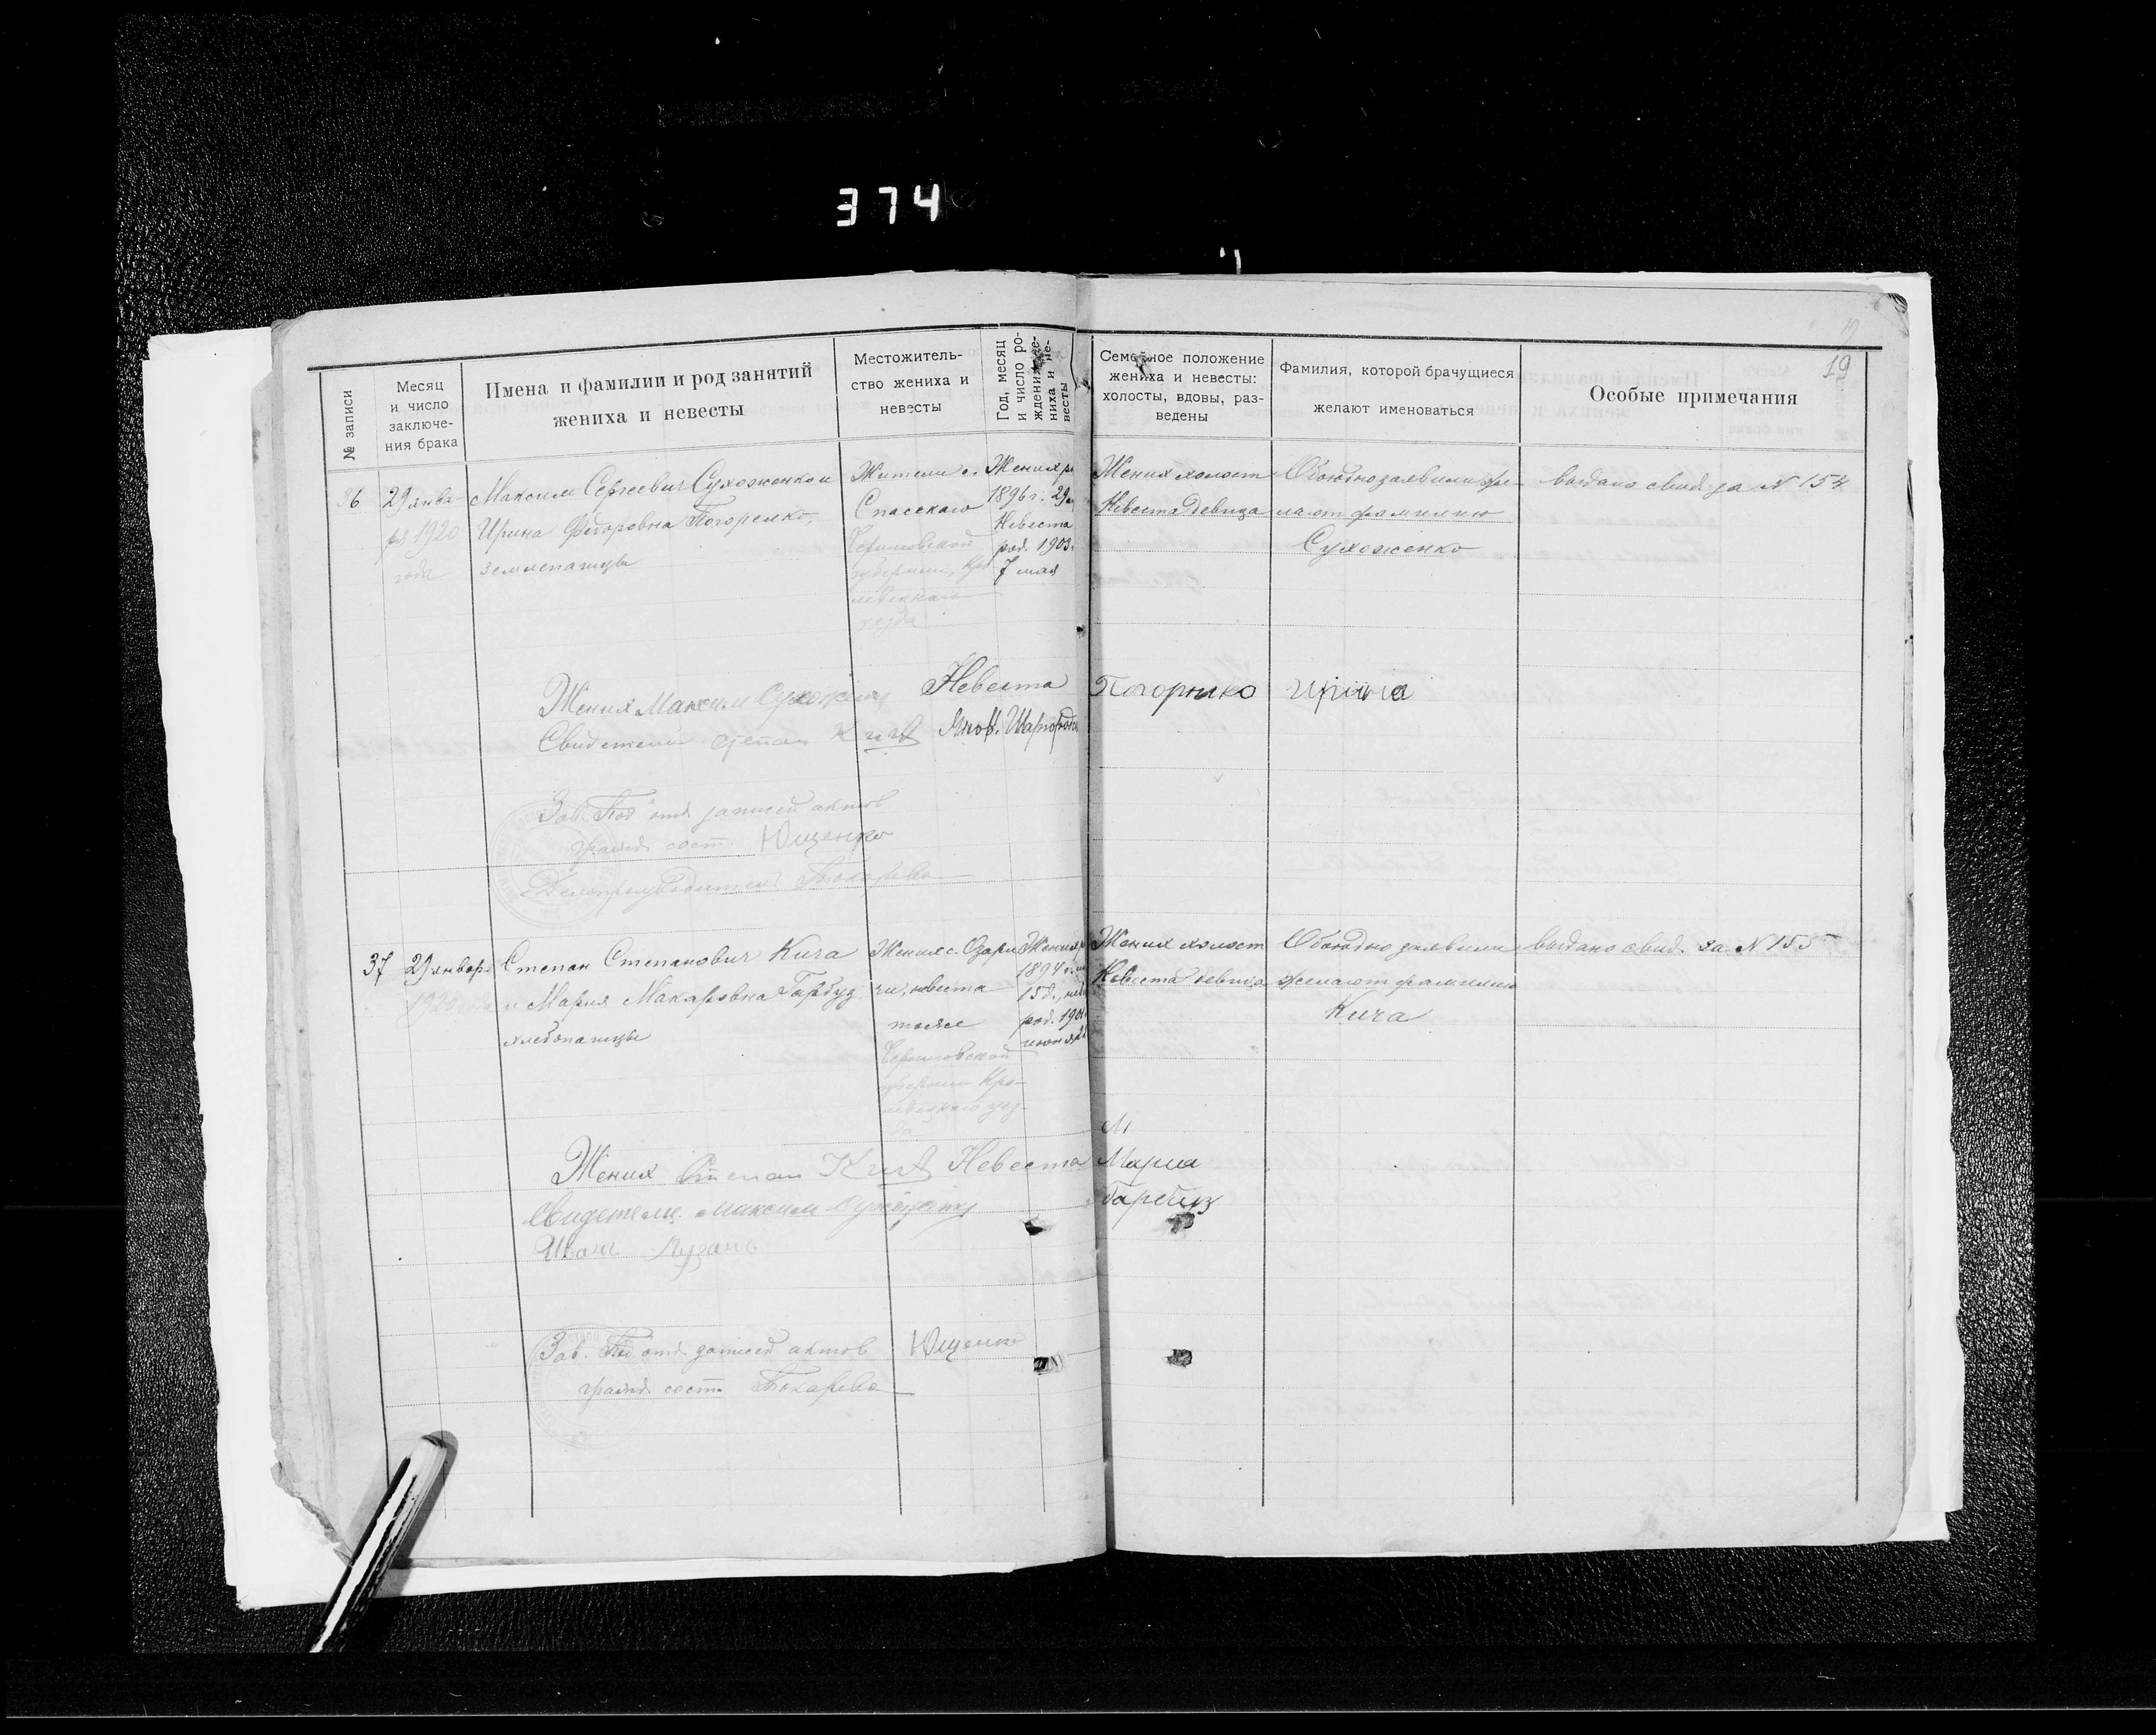 374
19
№ записи
Месяц
и число
заключе-
ния брака
Имена и фамилии и род занятий
жениха и невесты
Местожитель-
ство жениха и
невесты
Год, месяц
и число ро-
ждения же-
ниха и не-
весты
Семейное положение
жениха и невесты:
холосты, вдовы, раз-
ведены
Фамилия, которой брачущиеся
желают именоваться
Особые примечания
36
29 янва-
ря 1920
года
Максим Сергеевич Сухоженко и
Ирина Федоровна Погорелко,
землепашцы
Жители с.
Спасскаго
Черниговской
губернии, Кро
левецкаго
уезда
Жених р
1896 г. 29
Невеста
род. 1903
7 мая
Жених холост
Невеста девица
Обоюдно заявили же-
лают фамилию
Сухоженко
выдано свид за N 154
Жених Максим Сухоженко Невеста Погорелко Ирина
Свидетели Степан Кича Яков
Зав. Под отд записей актов
гражд сост. Ющенко
Делопроизводитель Токарева
37
29 январ
1920 года
Степан Степанович Кича
и Мария Макаровна Гарбуз
хлебопашцы
Жених с. Озари
чи, невеста
тоже
Черниговской
губернии Кро-
левецкаго уез-
да
Жених р
1894 г.
15 д.,
род. 190
июня
Жених холост
Невеста девица
Обоюдно заявили
желают фамилию
Кича
выдано свид. за N 155
М
Жених Степан Кича Невеста Мария
Гарбуз
Свидетели Максим Сухоженко
Иван Лузан
Зав. Под отд. записей актов Ющенко
гражд сост. Токарева